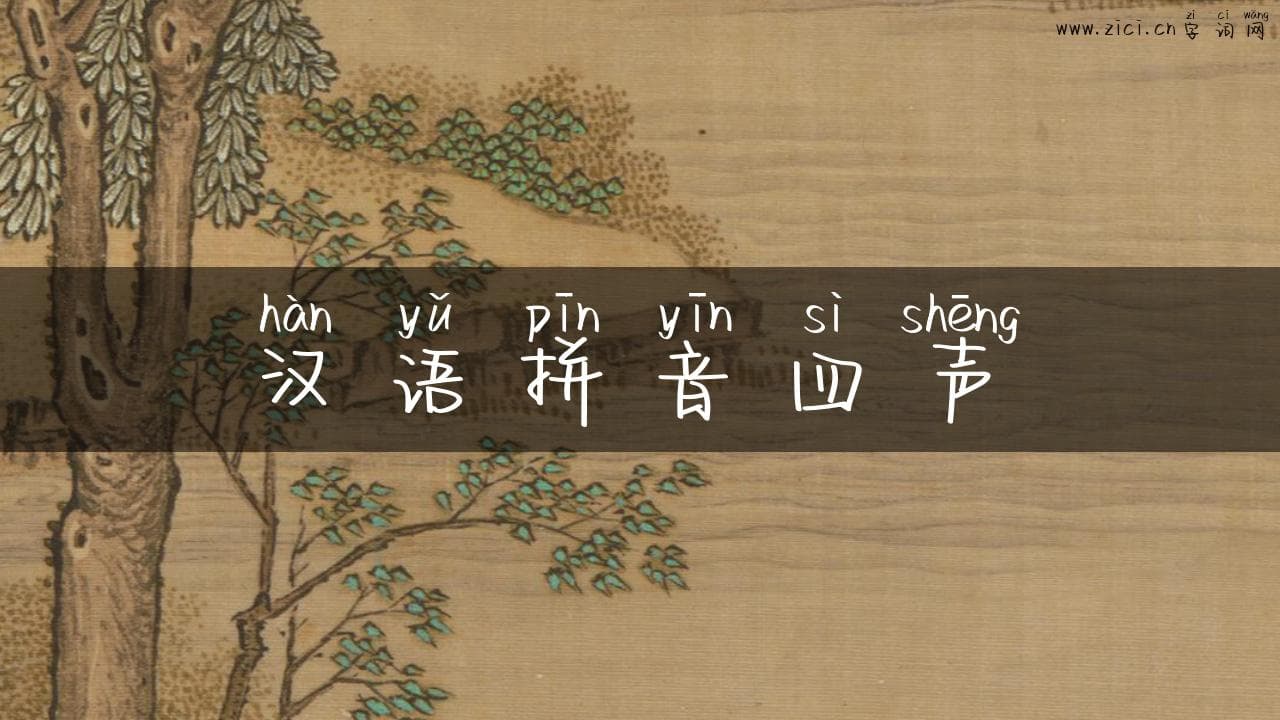 zì cí wǎng
www.zici.cn 字 词 网
hàn yǔ pīn yīn sì shēng
汉 语 拼 音 四 声